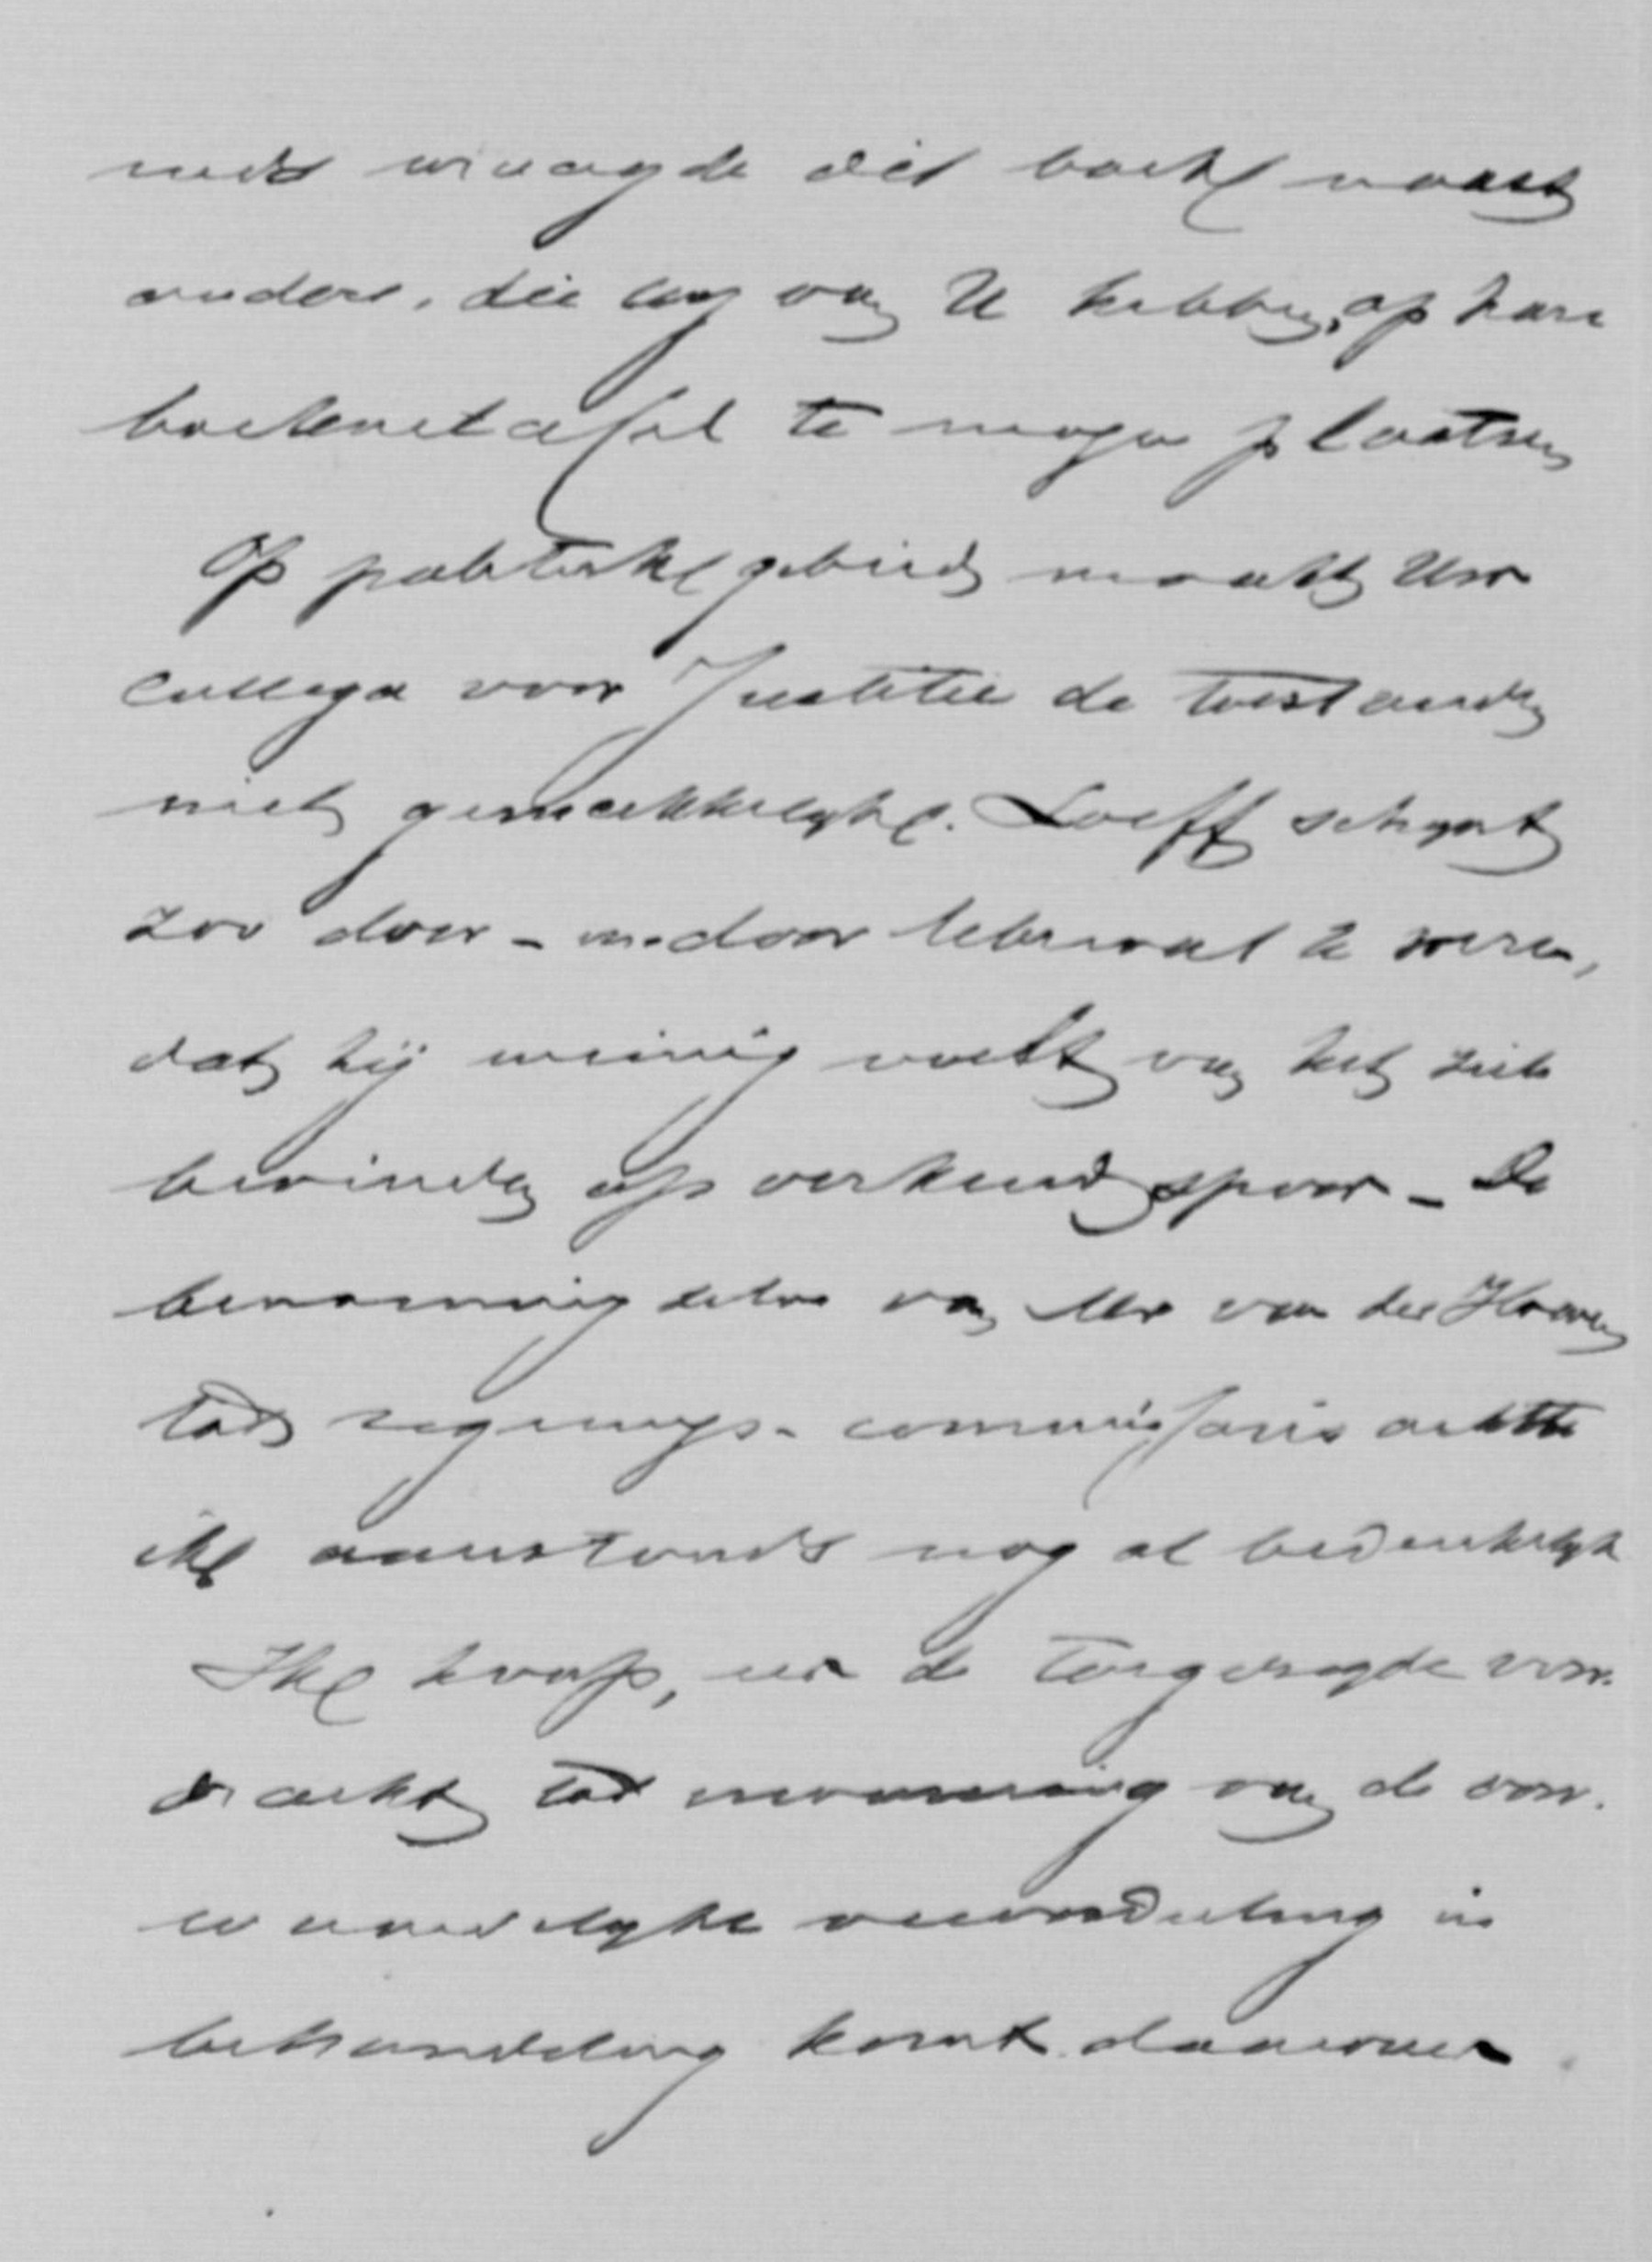 reeds vraagde dit boek naast
andere, die wij van U hebben, op hare
boekentafel te mogen plaatsen
Op politiek gebied maakt Uw
collega voor Justitie de toestanden
niet gemakkelijk. Loeff schijnt
zoo door-en-door liberaal te zijn,
dat hij weinig voelt van het zich
bevinden op verkeerd spoor - De
benoeming van Mr van der Hoeven
tot regerings-commissaris achtte
ik aanstonds nog al bedenkelijk
Ik hoop, als de toegezegde voor-
dracht tot invoering van de voor-
waardelijke veroordeeling in
behandeling komt daarover